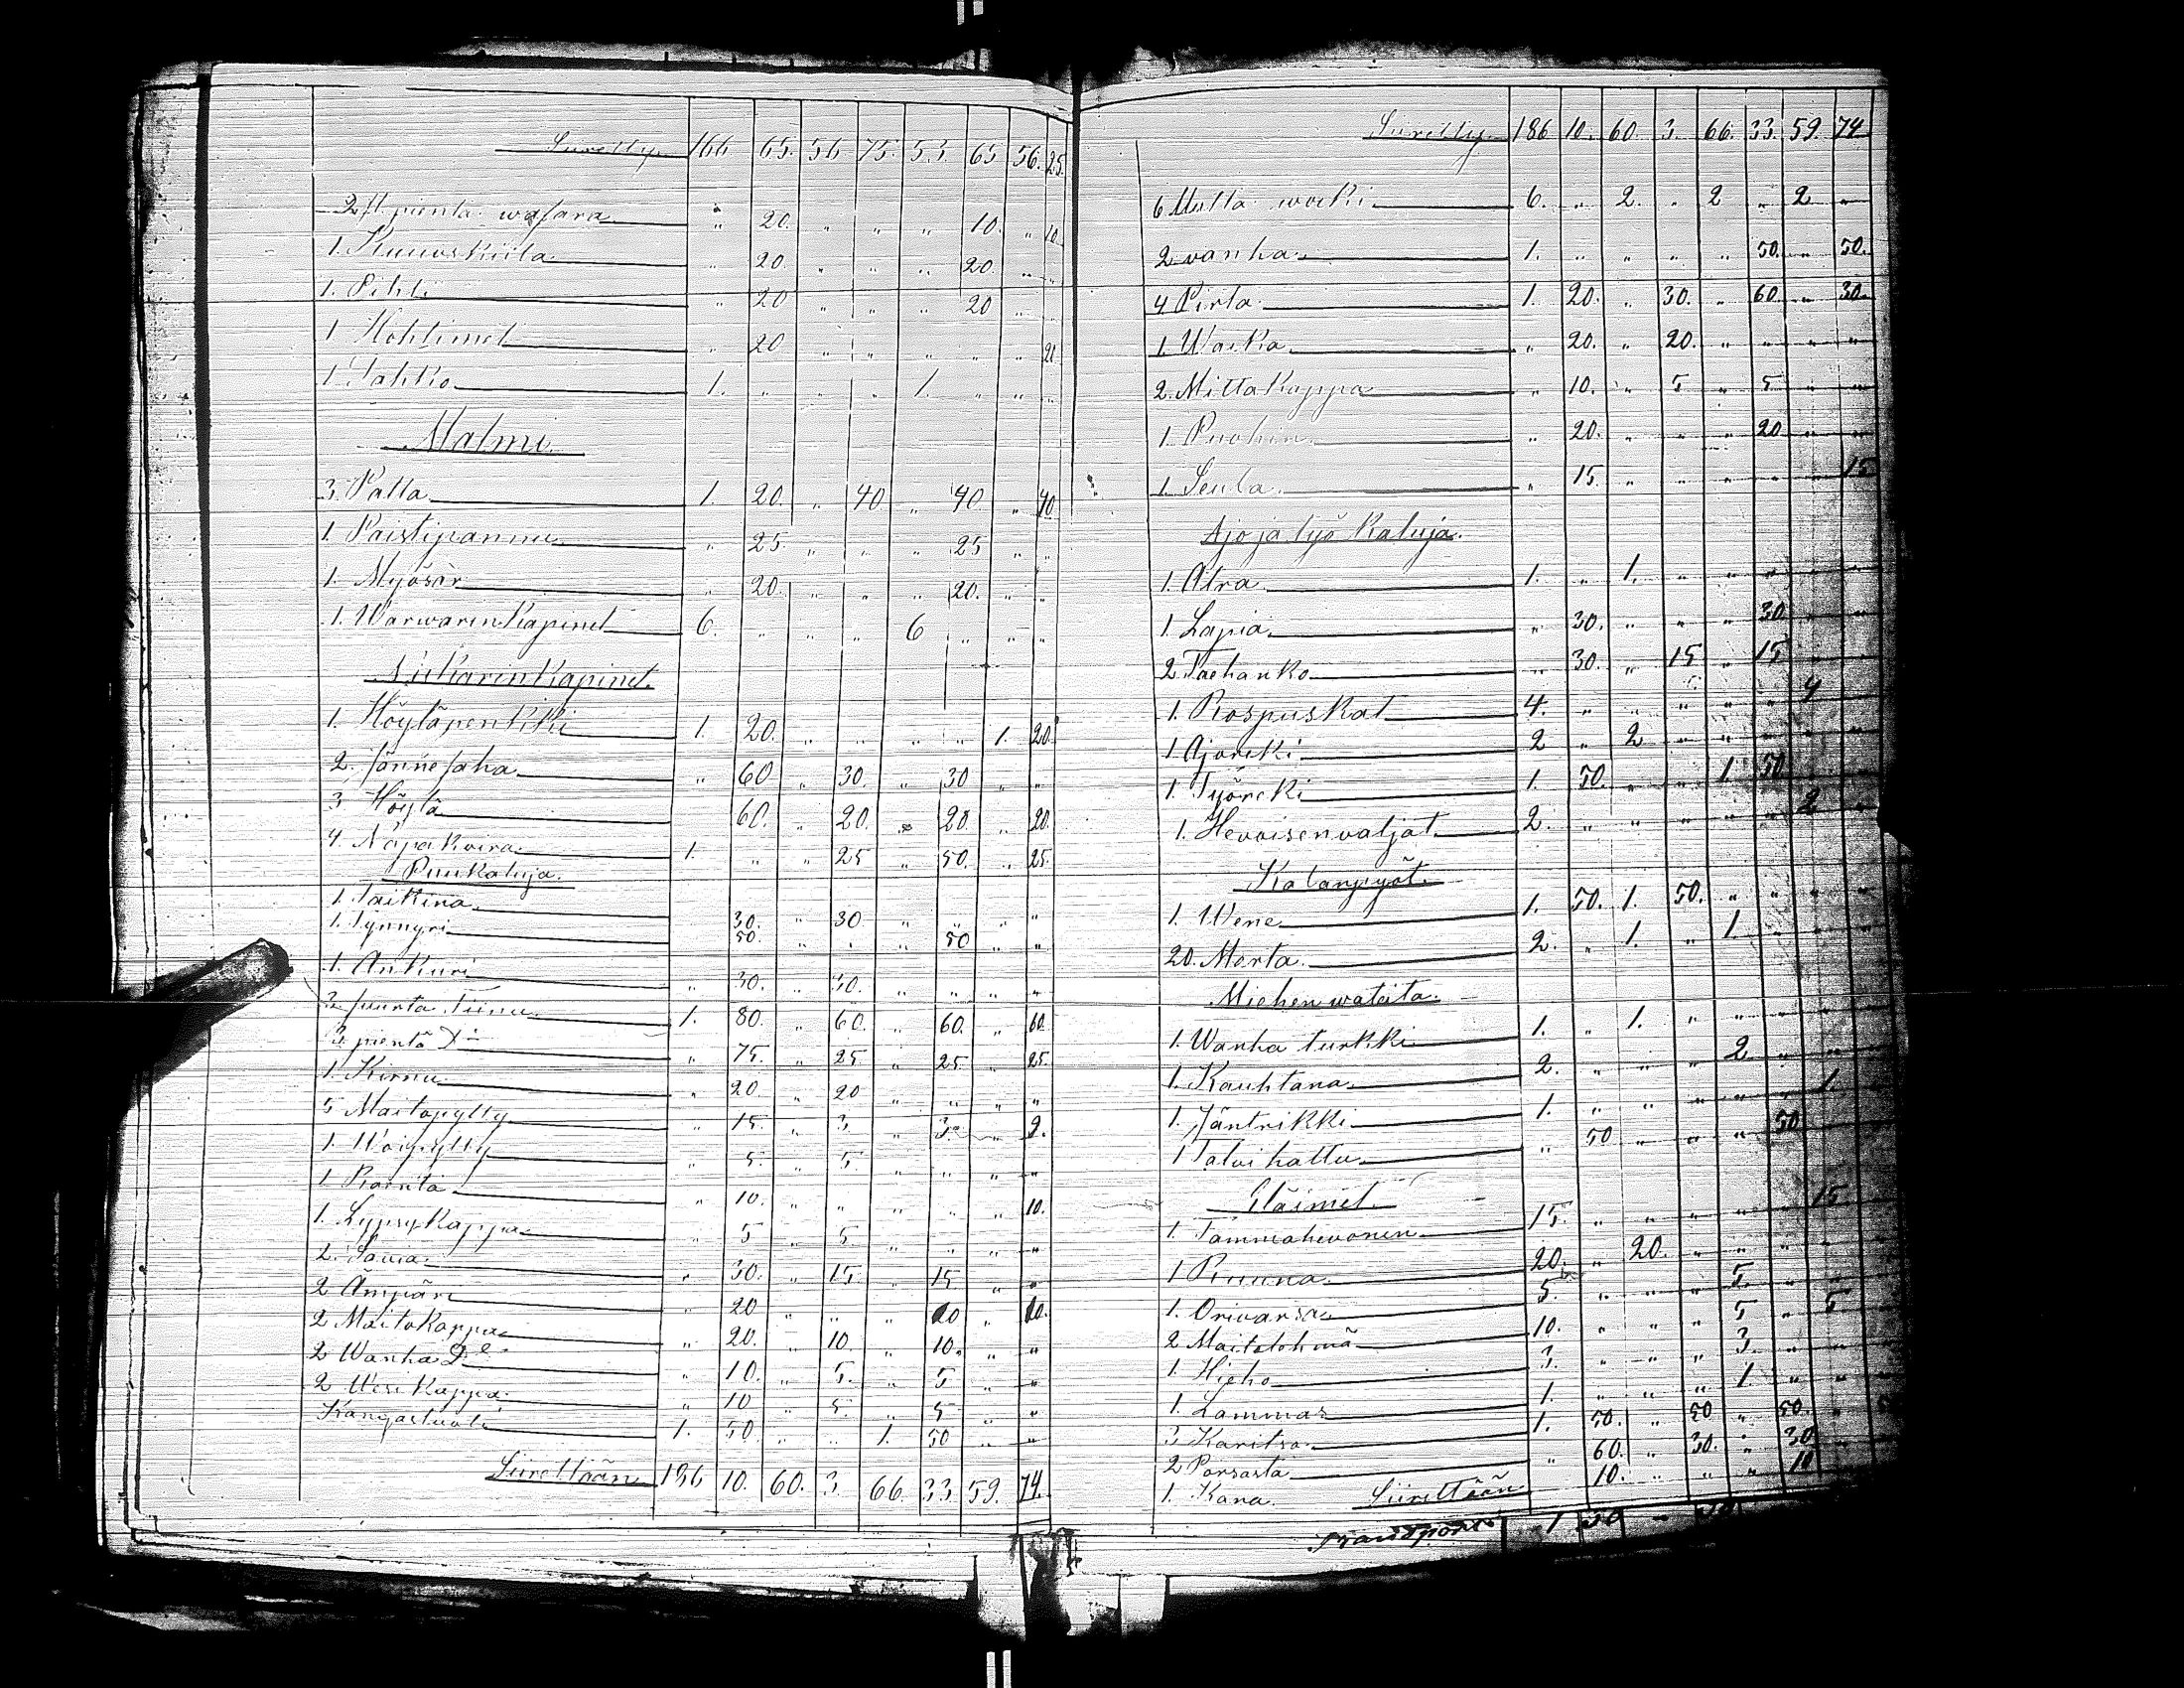 Siiretty 166 65. 56 75. 53 65 56. 25.
2 st. pientä wasara " 20. " " " 10. " 10.
1. Kuuoskiila " 20. " " " 20. " "
1. Pihti " 20 " " " 20 " "
1 Hohtimet " 20 " " " " " 20
1. Tahko 1. " " " 1. " " "
Malmi.
3. Patta 1. 20. " 40 " 40. " 40
1. Paistipannu " 25. " " " 25 " "
1. Myösär " 20. " " " 20. " "
1. Warwarin Kapinet 6. " " " 6 " " "
Nikarin Kapinet.
1. Höyläpenkki 1. 20. " " " " 1. 20.
2. Jänne saha " 60 " 30. " 30 " "
3 Höylä 60. " 20. " 20. " 20.
4. Näpäkoira 1. " " 25 " 50. " 25.
Puukaluja.
1 Taikina 30. " 30 " " " "
1. Tynnyri 50. " " " 50 " "
1. Ankuri " 30. " 30. " " " "
3 suurta Tiinu 1. 80. " 60. " 60. " 60
3. pientä D:o " 75. " 25 " 25. " 25.
1. Kirnu " 20. " 20 " " " "
5 Maitopytty " 15. " 3 " 3 " 2.
1. Woipytty " 5. " 5. " " " "
1. Rainta " 10. " " " " " 10.
1. Lypsykappa " 5 " 5 " " " "
2. Sawia " 30. " 15 " 15 " "
2 Ämpäri " 20 " " " 10 " 10.
2 Maitokappa " 20. " 10. " 10. " "
2 Wanha D:o " 10. " 5. " 5 " "
2 Wesi Kappa " 10 " 5. " 5 " "
Kangastuoli 1. 50. " " 1. 50 " "
Siirettään 186 10. 60. 3. 66. 33. 59. 74.
Siiretty 186 10. 60. 3. 66. 33. 59. 74
6 Uutta worki 6. " 2. " 2 " 2 "
2 vanha 1. " " " " 50. " 50.
4 Pirta 1. 20. " 30. " 60. " 30.
1. Waaka " 20. " 20. " " " "
2. Mitta Kappa " 10. " 5 " 5 " "
1. Puohin " 20. " " " 20 " "
1. Seula " 15. " " " " " 15
Ajo ja työ kaluja.
1. Atra 1. " 1. " " "
1. Lapia " 30. " " " 30. " "
2 Taehanko " 30. " 15 " 15 " "
1. Rospuskat 4. " " " " " 4
1. Ajoreki 2 " 2 " " " "
1. Työreki 1. 50. " " 1. 50
1. Hevoisenvaljat 2. " " " " " 2 "
Kalanpyöt.
1. Wene 1. 50. 1. 50. " " "
20. Merta 2. " 1. " 1. "
Miehen wateita.
1. Wanha turkki 1. " 1. " " " "
1. Kauhtana 2. " " " 2 " "
1. Jäntrikki 1. " " " " " 1.
1 Talvi hattu " 50 " " " 50
Eläimet.
1. Tammahevonen 15. " " " " " 15
1 Ruuna 20. " 20. " " " "
1. Orivarsa 5. " " " 5 " "
2 Maitolehmä 10. " " " 5 " 5
1. Hieho 3. " " " 3. " "
1. Lammas 1. " " " 1 " "
3 Karitsa 1. 50. " 50 " 50. "
2 Porsasta " 60. " 30. " 30
1. Kana 10. " " " 10
Siirettään
Transport 1 50